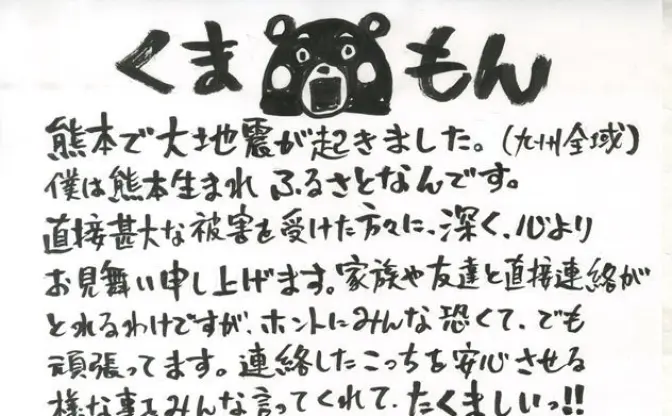 くまもん
熊本で大地震が起きました。(九州全域)
僕は熊本生まれ ふるさとなんです。
直接甚大な被害を受けた方々に、深く、心より
お見舞い申し上げます。家族や友達と直接連絡が
とれるわけですが、ホントにみんな恐くて、でも
頑張ってます。連絡したこっちを安心させる
様な事をみんな言ってくれて、たくましいっ!!